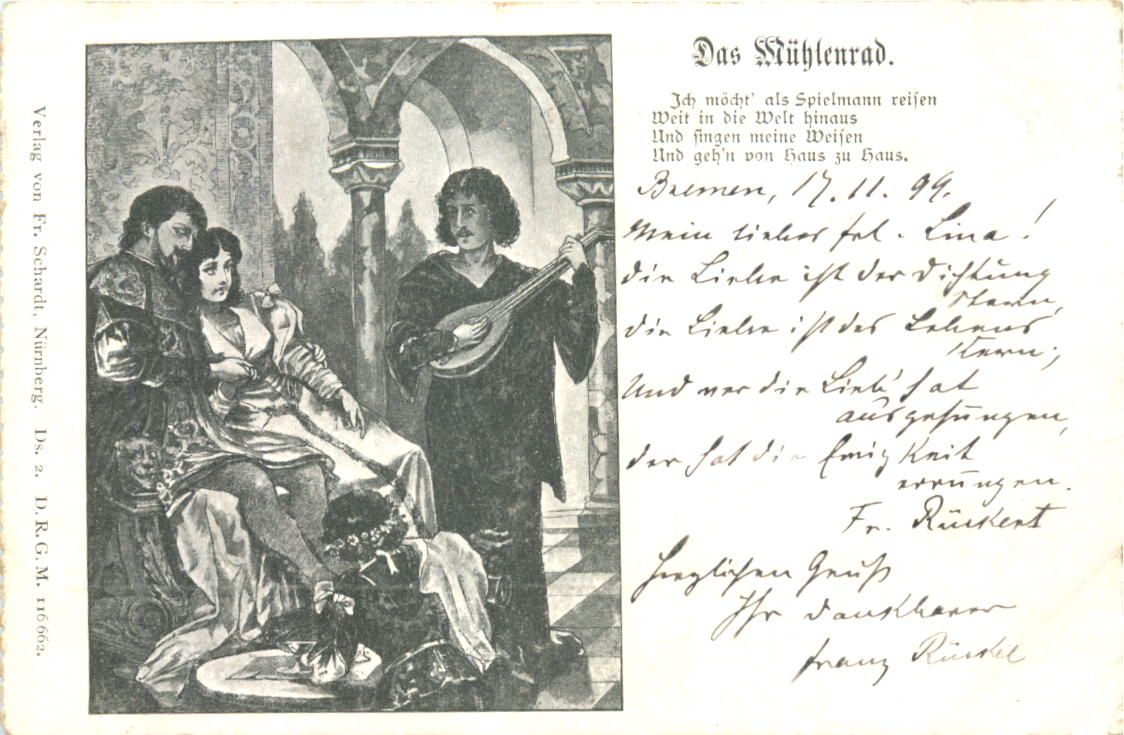 Das Mühlenrad.
Ich möcht' als Spielmann reisen
Weit in die Welt hinaus
Und singen meine Weisen
Und geh'n von Haus zu Haus.
Bremen, 17. 11. 99.
Mein liebes Frl. Lina!
die Liebe ist der Dichtung
Stern,
die Liebe ist des Lebens
Kern;
Und wer die Lieb' hat
ausgesungen,
der hat die Ewigkeit
errungen.
Fr. Rückert
Herzlichen Gruß
Ihr dankbarer
Franz Rückel
Verlag von Fr. Schardt, Nürnberg. Ds. 2. D. R. G. M. 116662.